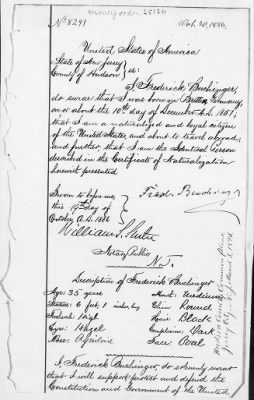 money order
No 8291
Oct. 20, 1886
United States of America
State of New Jersey
County of Hudson } ss:
I, Frederick Buchinger,
do swear that I was born in Germany,
on or about the 10th day of December A.D. 1851;
that I am a naturalized and loyal citizen
of the United States, and about to travel abroad;
and further, that I am the Identical Person
described in the Certificate of Naturalization
herewith presented
Sworn to before me
this 19th day of
October A.D. 1886
Fred. Buchinger
William S.
Notary Public
N.J.
Description of Frederick Buchinger
Age: 35 years
Mouth: Medium
Stature: 6 feet 1 inches, Eng
Chin: Round
Forehead: High
Hair: Black
Eyes: Hazel
Complexion: Dark
Nose: Aquiline
Face: Oval
I, Frederick Buchinger, do solemnly swear
that I will support, protect and defend the
Constitution and Government of the United